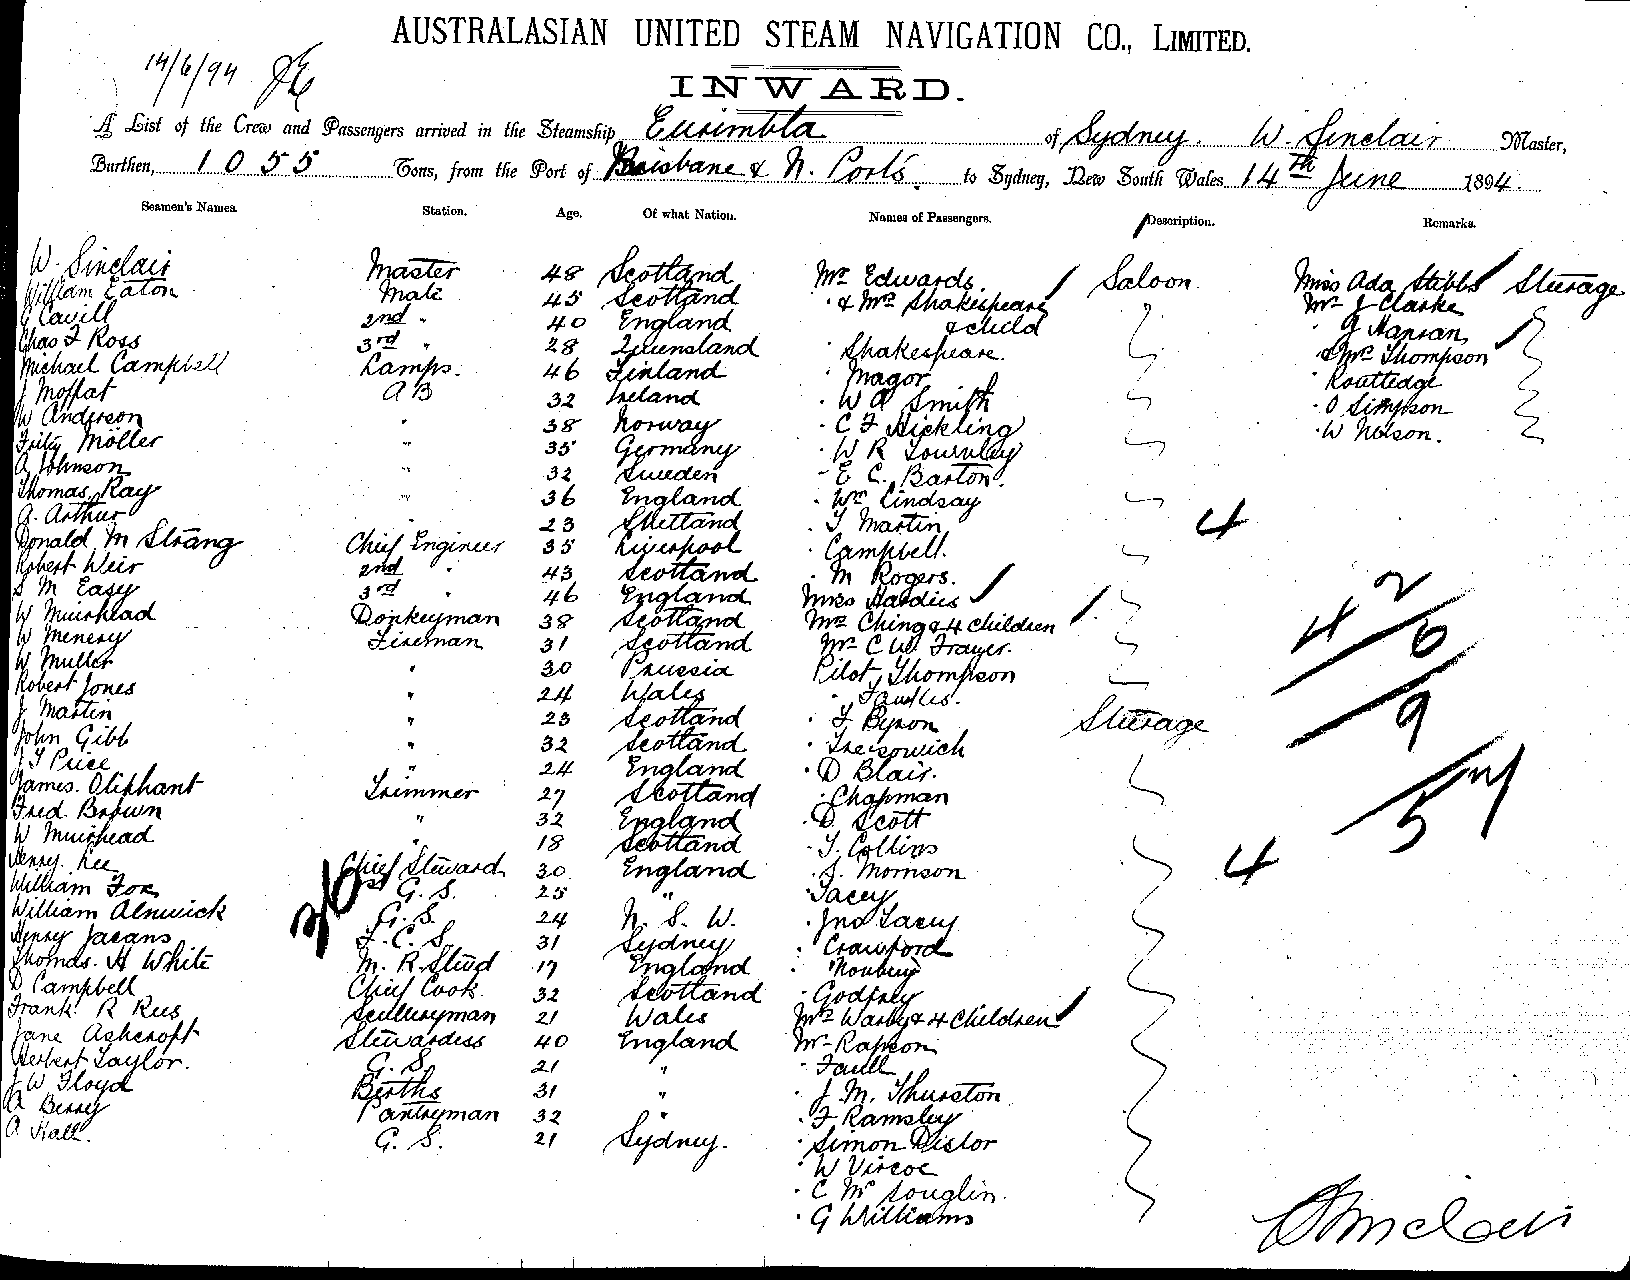 AUSTRALASIAN UNITED STEAM NAVIGATION CO., LIMITED.
14/6/94
INWARD.
A List of the Crew and Passengers arrived in the Steamship Eurimbla of Sydney. W. Sinclair Master,
Burthen, 1055 Tons, from the Port of Brisbane & N. Ports. to Sydney, New South Wales 14th June 1894.
Seamen's Names. Station. Age. Of what Nation. Names of Passengers. Description. Remarks.
W. Sinclair Master 48 Scotland Mr Edwards. Saloon Miss Ada Stibbs Sturage
William Eaton Mate 45 Scotland " & Mrs Shakespeare Mr J Clarke
Cavill 2nd " 40 England & child " Hansan
Chas F Ross 3rd " 28 Queensland " Shakespeare. " & Mrs Thompson
Michael Campbell Lamps. 46 Finland " Magor " Routledge
J Moffat A B 32 Ireland " W A Smith " O Simpson
W Anderson " 38 Norway " C F Hickling " W Nelson.
Fritz Moller " 35 Germany " W R Townley
A Johnson " 32 Sweden " E C. Barton.
Thomas Ray " 36 England " Wm Lindsay
A. Arthur " 23 Shetland " T Martin 4
Donald M Strang Chief Engineer 35 Liverpool " Campbell.
Robert Weir 2nd " 43 Scotland " M Rogers.
S M Easy 3rd " 46 England Miss Hardies
W Muirhead Donkeyman 38 Scotland Mrs Ching & 4 children
W Menery Fireman 31 Scotland Mr C W. Frayer.
W Muller " 30 Prussia Pilot Thompson
Robert Jones " 24 Wales " Fawkes.
J Martin " 23 Scotland " F Byron Sturage
John Gibb " 32 Scotland
J T Price " 24 England " D Blair.
James. Oliphant Trimmer 27 Scotland " Chapman
Fred. Brown " 32 England " D. Scott
W Muirhead " 18 Scotland " T. Collins
Henry. Lee Chief Steward 30 England " J. Momson 4
William Fox 1st G. S. 25 " " Tacey
William Alnwick G. S. 24 N. S. W. " Jno Tacey
Henry Jacans F. C. S. 31 Sydney " Crawford
Thomas. H White M. R. Stud 17 England
D Campbell Chief Cook 32 Scotland " Godfrey
Frank R Rees Sculleryman 21 Wales Mrs Warby & 4 children
Jane Ashcroft Stewardess 40 England Mr Rapson
Herbert Taylor. G. S. 21 " " Faill
J W Floyd Berths 31 " " J. M. Thurston
A Berry Pantryman 32 " " F. Ramsley
A Hall. G. S. 21 Sydney. " Simon Distor
" W Viscoe
" C
" G Williams